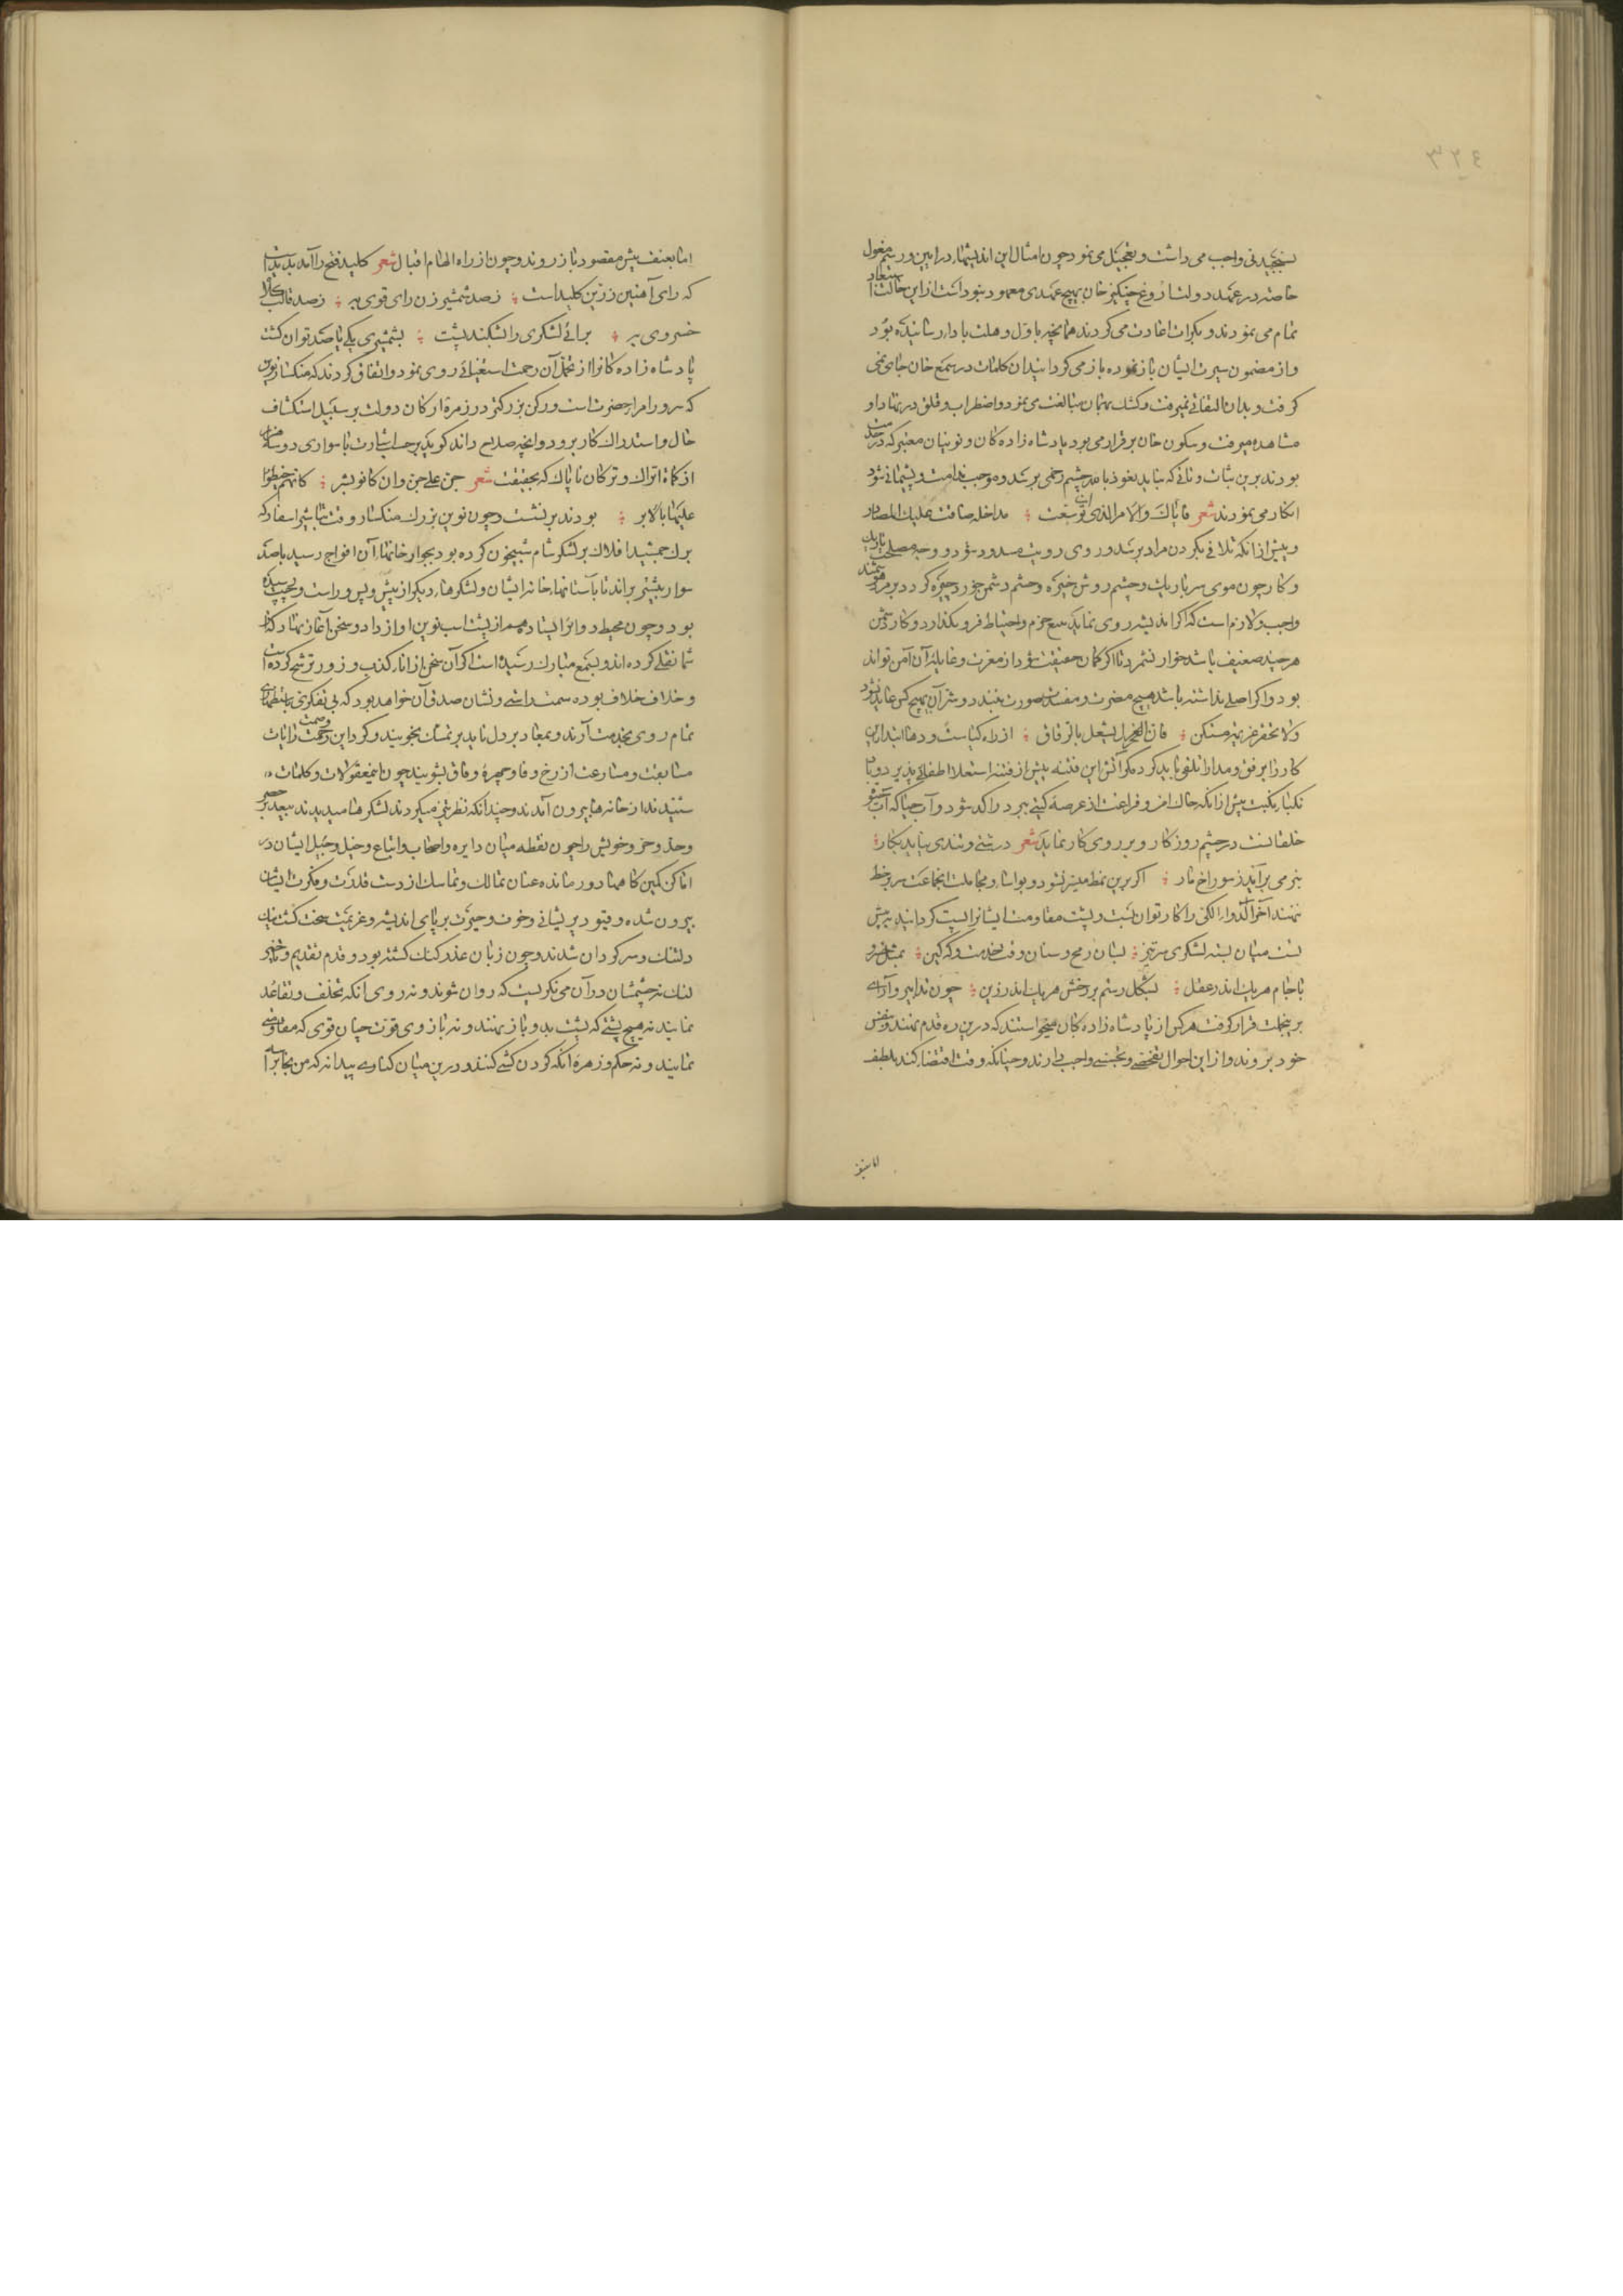 ٣٢٤
بسنجیدنی واجب می داشت و تعجیل می نمود چون امثال این اندیشها در ایین و رسم مغول
خاصه در عهد دولت اروغ چنکیز خان بهیچ عهدی معهود نبوداست ازین حالت استبعاد
تمام می نمودند و بکرات اعادت می کردند همانچه باول وهلت بادا رسانیده بود
و از مضمون سیرت ایشان باز نموده باز می کردانید ان کلمات در سمع خان جای نمی
کرفت و بدان التفاتی نمیرفت و کشک بهمان مبالغت می نمود و اضطراب و قلق در نهاد او
مشاهده میرفت و سکون خان برقرار می بود پادشاه زادکان و نوینان معتبر که در خدمت
بودند برین ثبات و تانی که نباید نعوذ بالله چشم زخمی برسد و موجب ندامت و پشیمانی شود
انکار می نمودند شعر فایاک والامر الذی ان توسعت مداخله ضاقت علیک المصادر
و پیش از انکه تلافی بکردن مراد برسد و روی رویت مسدود شود و وجه مصلحت باریک
و کار چون موی سر باریک و چشم روشن خیره و چشم دشمن چیره کردد بر مرد هوشمند
واجب و لازم است که اکر اندیشه روی نماید سمع حزم و احتیاط فرو نکذارد و کار دشمن
هر چند ضعیف باشد خوار نشمرد تا اکر کمان حقیقت شود از معرت و غایله آن آمن تواند
بود و اکر اصلی نداشته باشد هیچ مضرت و مفسدت صورت نبندد و شر آن بهیچ کس عاید نشود
ولا تحقر عزیمة مستکن فان الفخر یشعل بالرقاق از راه کیاست و دها ابتدا این
کار را برفق و مدارا تلقی باید کرد مکر آتش این فتنه پیش از فتنه استعلا اطفائی پذیرد و باد
نکبا نکبت پیش از انکه خاک امن و فراغت از عرصه کیتی ببرد راکد شود و آب حیا که آب شو
خلقانست در چشم روزکار و بر روی کار نماید شعر درشتی و تندی نیاید بکار
بنرمی برآید ز سوراخ مار اکر برین نمط میسر نشود و بواسا و مجاملت انجماعت سر بر خط
ننهند آخر الدواء الکی را کار توان بست و پشت مقاومت ایشانرا پست کردانید
بست میان بسته لشکری سرتیز بسان رمح و سنان وقت خدمت و که کین
با جام هر یک اندر عقل بشکل رستم بر رخش هر یک اندر زین چون تدابیر و آرای
برینجملت قرار کرفت هر کس از پادشاه زادکان میخواستند که درین ره قدم نهند و بنفس
خود بروند و از این احوال تفحصی و تجسسی واجب دارند و چنانکه وقت اقتضا کند بلطف
اما بعنف
اما بعنف پیش مقصود باز روند و چون از راه الهام اقبال شعر کلید فتح را آمد پدیدا
که رای آهنین زرین کلیداست ز صد شمشیر زن رای قوی به ز صد قالب کلاه
خسروی به برائی لشکری را بشکند پشت بشمشیری یکی تا صد توان کشت
پادشاه زادکانرا از تحمل آن زحمت استغنائی روی نمود و اتفاق کردند که منکسار نوین
که سرور امرا حضرت است و رکن بزرکتر در زمره ارکان دولت بر سبیل استکشاف
حال و استدراک کار برود و انچه صلاح داند کوید بر حسب اشارت با سواری دو سه هزار
از کماة اتراک و ترکان ناپاک که بحقیقت شعر جن علی جن وان کانوا بشر کانهم خیطوا
علیها بالابر بودند برنشست و چون نوین بزرک منکسار وقت تباشیر اسفار که
برک جمشید افلاک بر لشکر شام شبیخون کرده بود بجوار خانها آن افواج رسید با صد
سوار پیشتر براند تا بآستانها خانه ایشان و لشکرها دیکر از پیش و پس و راست و چپ رسیده
بود و چون محیط دوائر ایستاد هم از پشت اسب نوین اواز داد و سخن آغاز نهاد که از
شما نقلی کرده اند و بسمع مبارک رسیده است اکر آن سخن از اناء کذب و زور ترشح کرده است
و خلاف خلاف بوده سمت راستی و نشان صدق آن خواهد بود که بی تفکری باستظهاری
تمام روی بخدمت آرند و میعاد بر دل ناید بر تمسک نجویند و کرد این وصمت زحمت رایات
مسابقت و مسارعت از رخ وفا و چهره وفاق بشویند چون این معقولات و کلمات
شنیدند از خانه ها بیرون آمدند و چندانکه نظر نمی میکردند لشکرها میدیدند بیعد بر حصر
وحد و حزر و خویش را چون نقطه میان دایره و اصحاب و اتباع و خیل و جبل ایشان در
اماکن کمین کاهها دور مانده عنان تمالک و تماسک از دست قدرت و مکرت ایشان
بیرون شده و قیود پریشانی و خوف و حیرت بر پای اندیشه و عزیمت سخت کشت
دلتنک و سرکردان شدند و چون زبان عذر کنک کشته بود و قدم تقدیم و تاخیر
لنک نه چشمشان در آن می نکریست که روان شوند و نه روی انکه تخلف و تقاعد
نمایند نه هیچ پشتی که پشت بدو باز نهند و نه بازوی قوت چنان قوی که مقاومتی
نمایند و نه حکم و زهره انکه کردن کشی کنند و درین میان کناره پیدا نه که من نجا براسه